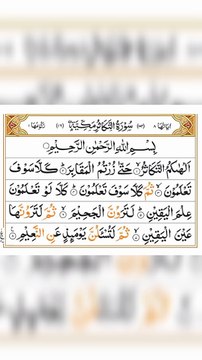 سُوْرَةُ التَّكَاثُرِ مَكِّيَّةٌ
بِسْمِ اللّٰهِ الرَّحْمٰنِ الرَّحِيْمِ
اَلْهٰىكُمُ التَّكَاثُرُ ۙ حَتّٰى زُرْتُمُ الْمَقَابِرَ ؕ كَلَّا سَوْفَ
تَعْلَمُوْنَ ۙ ثُمَّ كَلَّا سَوْفَ تَعْلَمُوْنَ ؕ كَلَّا لَوْ تَعْلَمُوْنَ
عِلْمَ الْيَقِيْنِ ؕ لَتَرَوُنَّ الْجَحِيْمَ ۙ ثُمَّ لَتَرَوُنَّهَا
عَيْنَ الْيَقِيْنِ ۙ ثُمَّ لَتُسْـَٔلُنَّ يَوْمَىِٕذٍ عَنِ النَّعِيْمِ